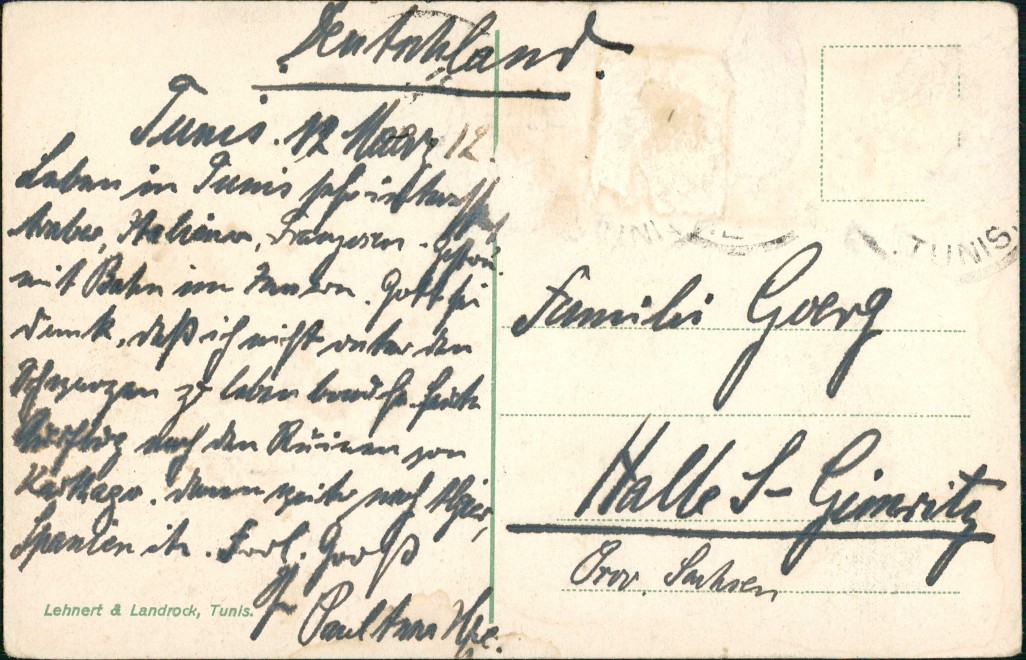 Deutschland.
Tunis. 12 Maerz 12.
Leben in Tunis sehr interessant
Araber, Italiener, Franzosen. Gestern
mit Bahn im Innern. Gott sei
dank, daß ich nicht unter den
Schwarzen zu leben brauche. Heute
Ausflug nach den Ruinen von
Karthago. dann weiter nach Algier,
Spanien etc. Herzl. Gruß
Paul
Lehnert & Landrock, Tunis.
TUNIS
Familie Goerg
Halle S- Gimritz
Prov. Sachsen